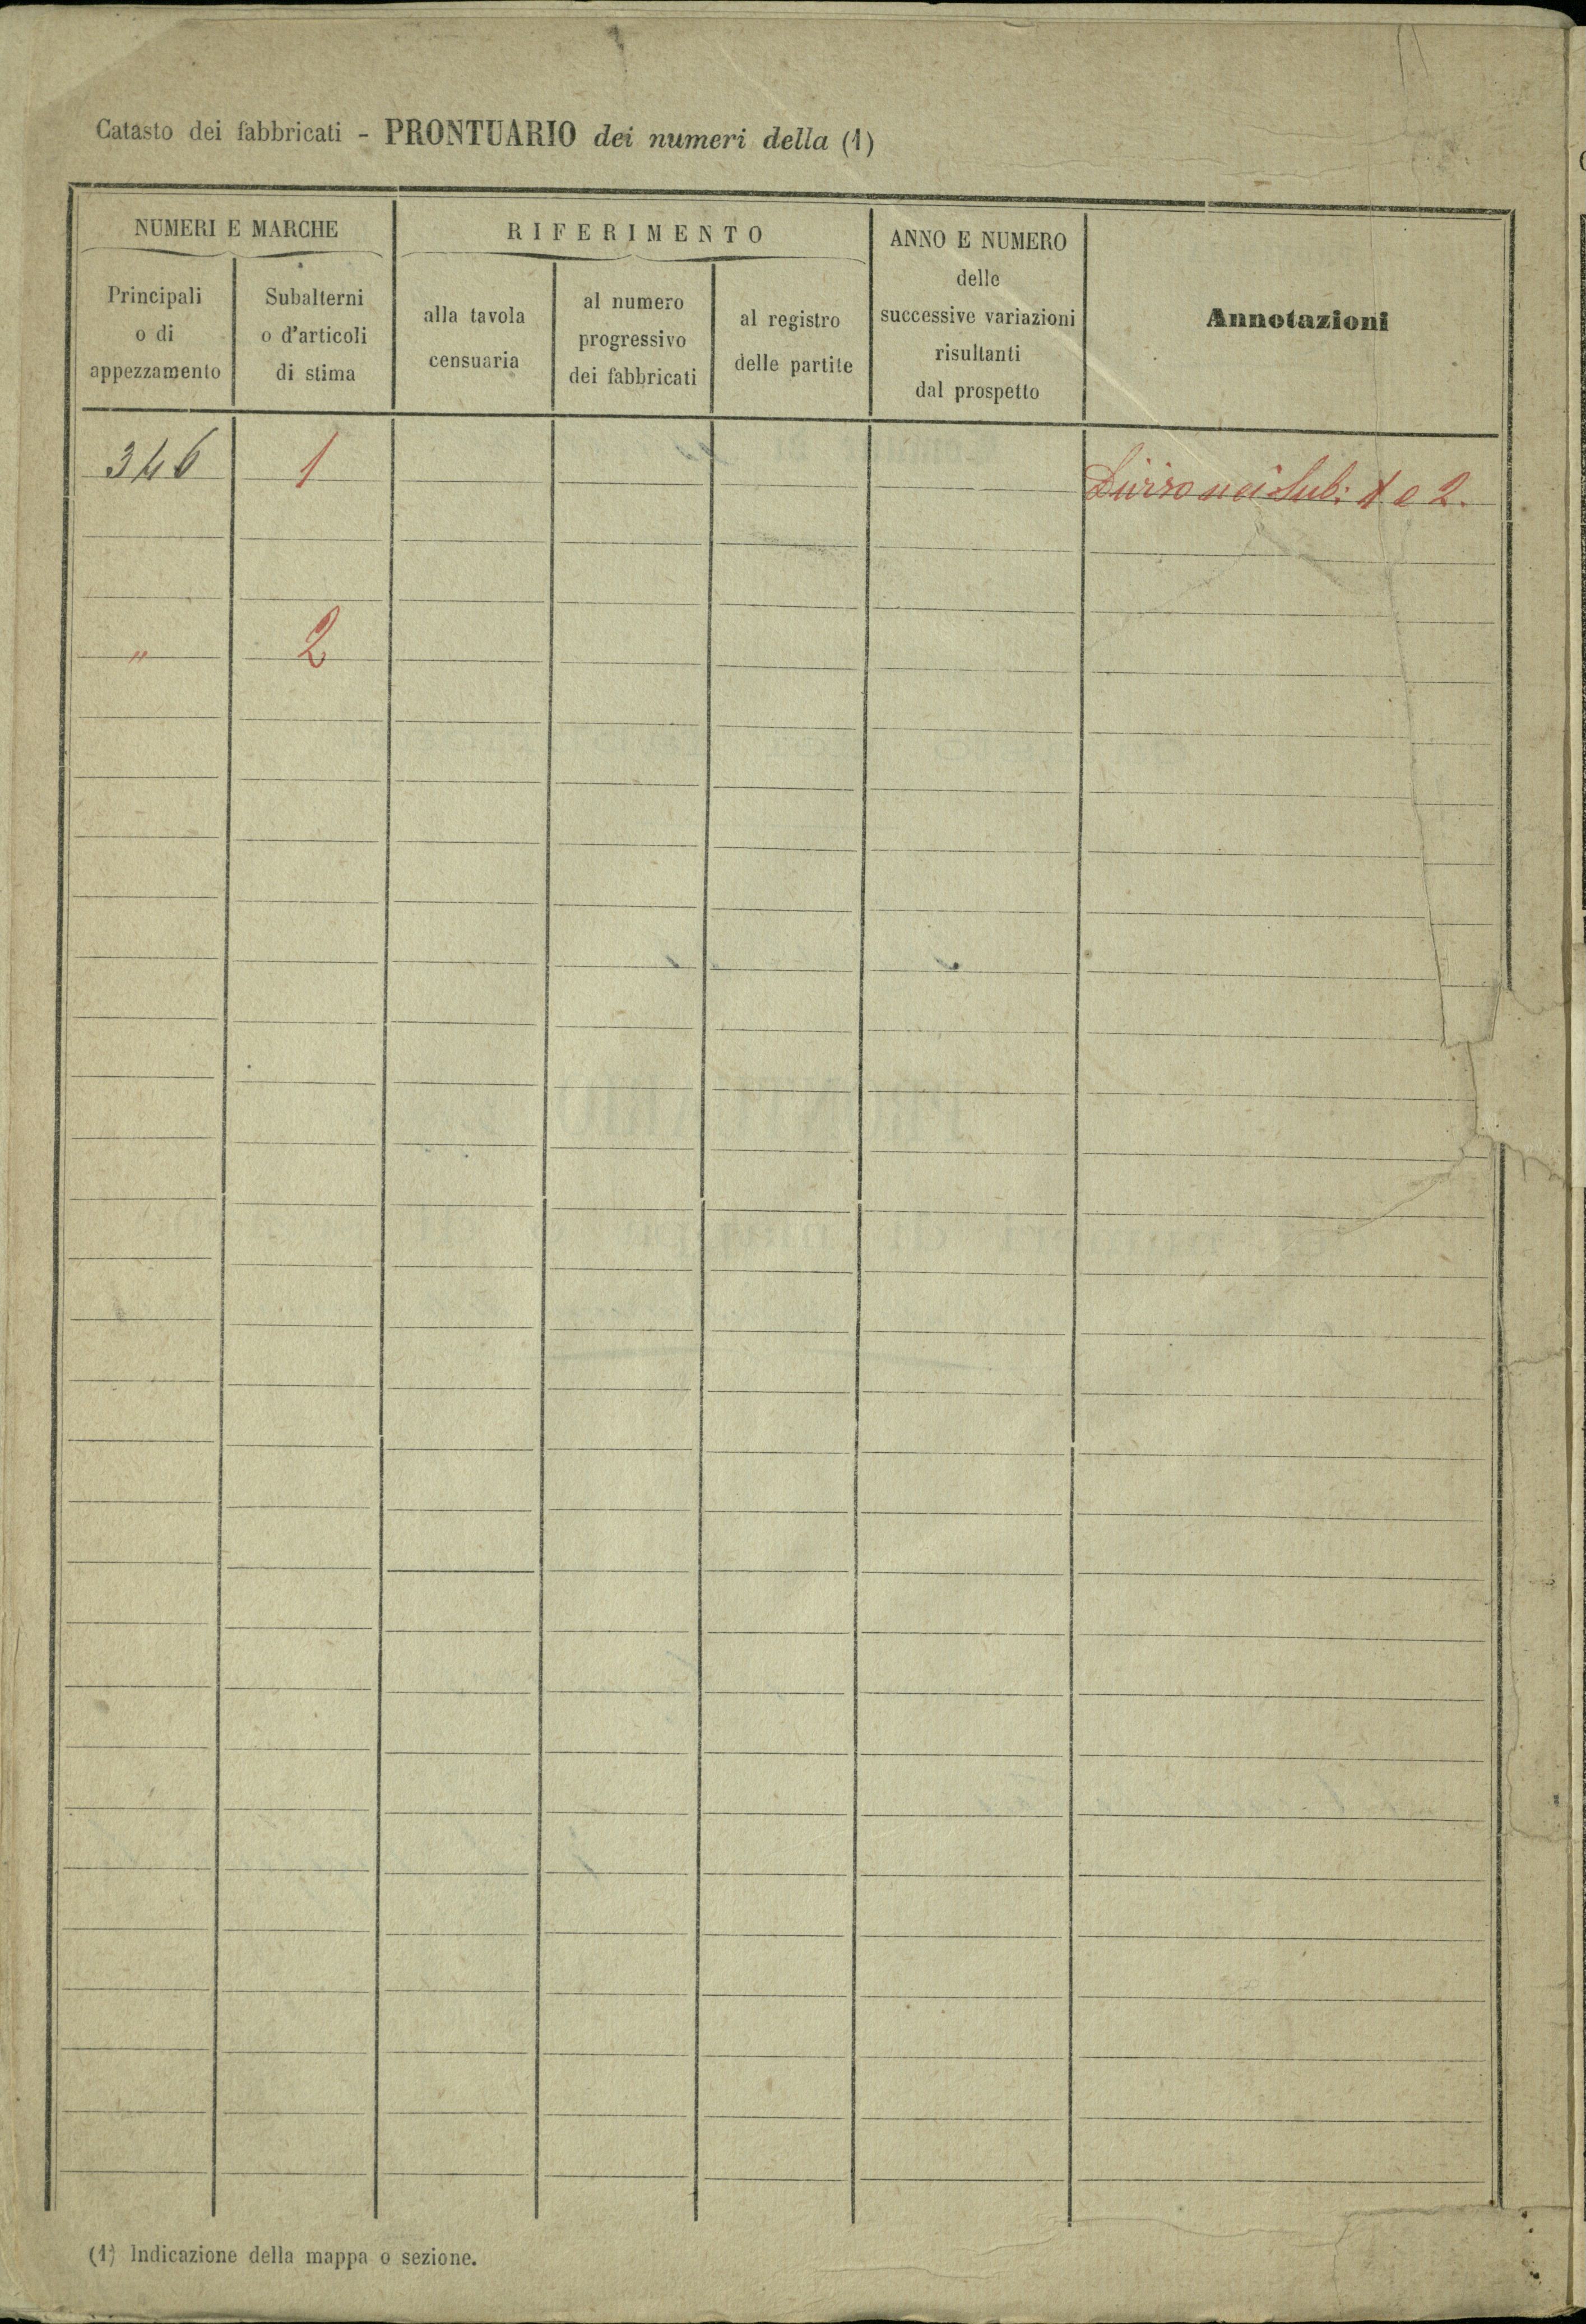 Catasto dei fabbricati - PRONTUARIO dei numeri della (1)
NUMERI E MARCHE
RIFERIMENTO
ANNO E NUMERO
delle
successive variazioni
risultanti
dal prospetto
Annotazioni
Principali
o di
appezzamento
Subalterni
o d'articoli
di stima
alla tavola
censuaria
al numero
progressivo
dei fabbricati
al registro
delle partite
346 1 Diviso nei Sub: 1 e 2.
" 2
(1) Indicazione della mappa o sezione.